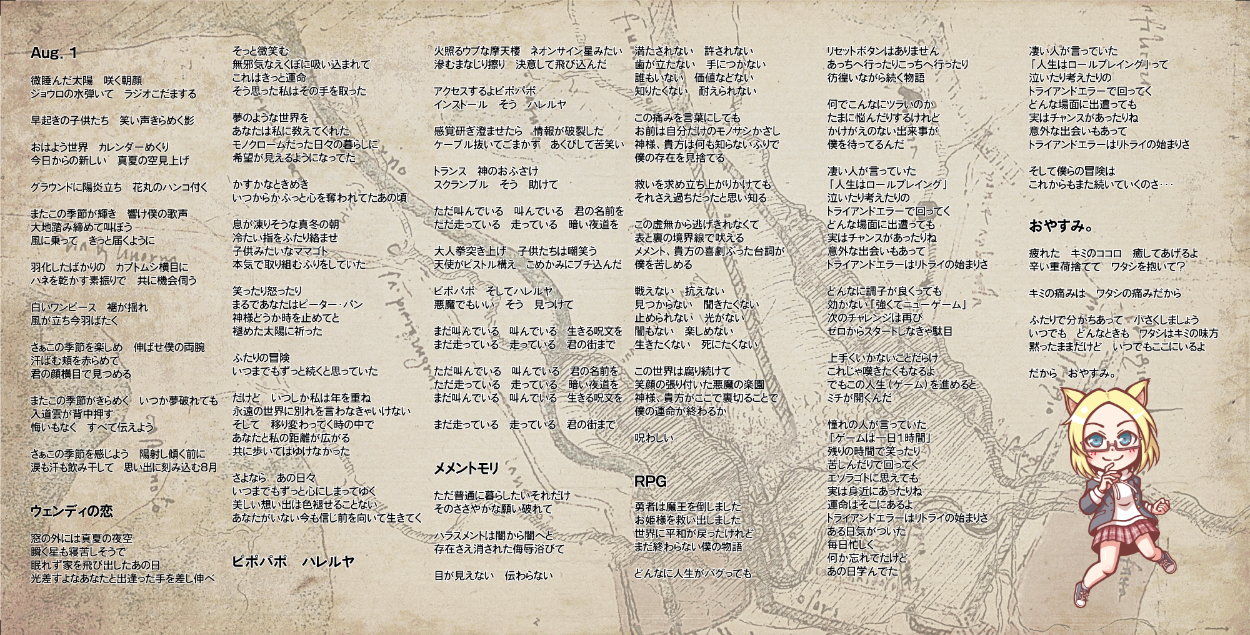 Aug. 1
微睡んだ太陽　咲く朝顔
ジョウロの水弾いて　ラジオこだまする
早起きの子供たち　笑い声きらめく影
おはよう世界　カレンダーめくり
今日からの新しい　真夏の空見上げ
グラウンドに陽炎立ち　花丸のハンコ付く
またこの季節が輝き　響け僕の歌声
大地踏み締めて叫ぼう
風に乗って　きっと届くように
羽化したばかりの　カブトムシ横目に
ハネを乾かす素振りで　共に機会伺う
白いワンピース　裾が揺れ
風が立ち今羽ばたく
さぁこの季節を楽しめ　伸ばせ僕の両腕
汗ばむ頬を赤らめて
君の顔横目で見つめる
またこの季節がきらめく　いつか夢破れても
入道雲が背中押す
悔いもなく　すべて伝えよう
さぁこの季節を感じよう　陽射し傾く前に
涙も汗も飲み干して　思い出に刻み込む8月
ウェンディの恋
窓の外には真夏の夜空
瞬く星も寝苦しそうで
眠れず家を飛び出したあの日
光差すよなあなたと出逢った手を差し伸べ
そっと微笑む
無邪気なえくぼに吸い込まれて
これはきっと運命
そう思った私はその手を取った
夢のような世界を
あなたは私に教えてくれた
モノクロームだった日々の暮らしに
希望が見えるようになってた
かすかなときめき
いつからかふっと心を奪われてたあの頃
息が凍りそうな真冬の朝
冷たい指をふたり絡ませ
子供みたいなママゴト
本気で取り組むふりをしていた
笑ったり怒ったり
まるであなたはピーター・パン
神様どうか時を止めてと
褪めた太陽に祈った
ふたりの冒険
いつまでもずっと続くと思っていた
だけど　いつしか私は年を重ね
永遠の世界に別れを言わなきゃいけない
そして　移り変わってく時の中で
あなたと私の距離が広がる
共に歩いてはゆけなかった
さよなら　あの日々
いつまでもずっと心にしまってゆく
美しい想い出は色褪せることない
あなたがいない今も信じ前を向いて生きてく
ピポパポ　ハレルヤ
火照るウブな摩天楼　ネオンサイン星みたい
滲むまなじり擦り　決意して飛び込んだ
アクセスするよピポパポ
インストール　そう　ハレルヤ
感覚研ぎ澄ませたら　情報が破裂した
ケーブル抜いてごまかす　あくびして苦笑い
トランス　神のおふざけ
スクランブル　そう　助けて
ただ叫んでいる　叫んでいる　君の名前を
ただ走っている　走っている　暗い夜道を
大人拳突き上げ　子供たちは嘲笑う
天使がピストル構え　こめかみにブチ込んだ
ピポパポ　そしてハレルヤ
悪魔でもいい　そう　見つけて
まだ叫んでいる　叫んでいる　生きる呪文を
まだ走っている　走っている　君の街まで
ただ叫んでいる　叫んでいる　君の名前を
ただ走っている　走っている　暗い夜道を
まだ叫んでいる　叫んでいる　生きる呪文を
まだ走っている　走っている　君の街まで
メメントモリ
ただ普通に暮らしたいそれだけ
そのささやかな願い破れて
ハラスメントは闇から闇へと
存在さえ消された侮辱浴びて
目が見えない　伝わらない
満たされない　許されない
歯が立たない　手につかない
誰もいない　価値などない
知りたくない　耐えられない
この痛みを言葉にしても
お前は自分だけのモノサシかざし
神様、貴方は何も知らないふりで
僕の存在を見捨てる
救いを求め立ち上がりかけても
それさえ過ちだったと思い知る
この虚無から逃げきれなくて
表と裏の境界線で吠える
メメント、貴方の喜劇ぶった台詞が
僕を苦しめる
戦えない　抗えない
見つからない　聞きたくない
止められない　光がない
闇もない　楽しめない
生きたくない　死にたくない
この世界は腐り続けて
笑顔の張り付いた悪魔の楽園
神様、貴方がここで裏切ることで
僕の運命が終わるか
呪わしい
RPG
勇者は魔王を倒しました
お姫様を救い出しました
世界に平和が戻ったけれど
まだ終わらない僕の物語
どんなに人生がバグっても
リセットボタンはありません
あっちへ行ったりこっちへ行ったり
彷徨いながら続く物語
何でこんなにツラいのか
たまに悩んだりするけれど
かけがえのない出来事が
僕を待ってるんだ
凄い人が言っていた
「人生はロールプレイング」
泣いたり考えたりの
トライアンドエラーで回ってく
どんな場面に出遭っても
実はチャンスがあったりね
意外な出会いもあって
トライアンドエラーはリトライの始まりさ
どんなに調子が良くっても
効かない「強くてニューゲーム」
次のチャレンジは再び
ゼロからスタートしなきゃ駄目
上手くいかないことだらけ
これじゃ嘆きたくもなるよ
でもこの人生（ゲーム）を進めると
ミチが開くんだ
憧れの人が言っていた
「ゲームは一日1時間」
残りの時間で笑ったり
苦しんだりで回ってく
エソラゴトに思えても
実は身近にあったりね
運命はそこにあるよ
トライアンドエラーはリトライの始まりさ
ある日気がついた
毎日忙しく
何か忘れてたけど
あの日学んでた
凄い人が言っていた
「人生はロールプレイング」って
泣いたり考えたりの
トライアンドエラーで回ってく
どんな場面に出遭っても
実はチャンスがあったりね
意外な出会いもあって
トライアンドエラーはリトライの始まりさ
そして僕らの冒険は
これからもまた続いていくのさ…
おやすみ。
疲れた　キミのココロ　癒してあげるよ
辛い重荷捨てて　ワタシを抱いて？
キミの痛みは　ワタシの痛みだから
ふたりで分かちあって　小さくしましょう
いつでも　どんなときも　ワタシはキミの味方
黙ったままだけど　いつでもここにいるよ
だから　おやすみ。